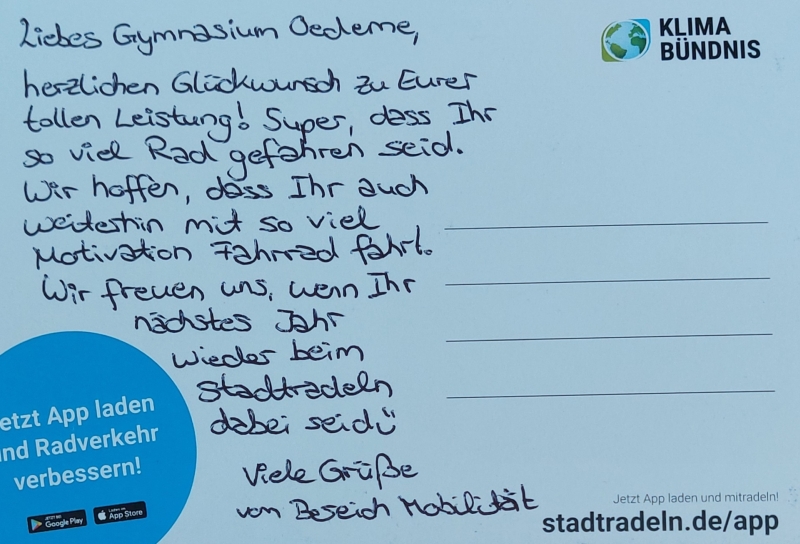 Liebes Gymnasium Oedeme,
KLIMA
BÜNDNIS
herzlichen Glückwunsch zu Eurer
tollen Leistung! Super, dass Ihr
so viel Rad gefahren seid.
Wir hoffen, dass Ihr auch
weiterhin mit so viel
Motivation Fahrrad fahrt.
Wir freuen uns, wenn Ihr
nächstes Jahr
wieder beim
Stadtradeln
dabei seid
Viele Grüße
vom Bereich Mobilität
etzt App laden
nd Radverkehr
verbessern!
JETZT BEI
Google Play
Laden im
App Store
Jetzt App laden und mitradeln!
stadtradeln.de/app